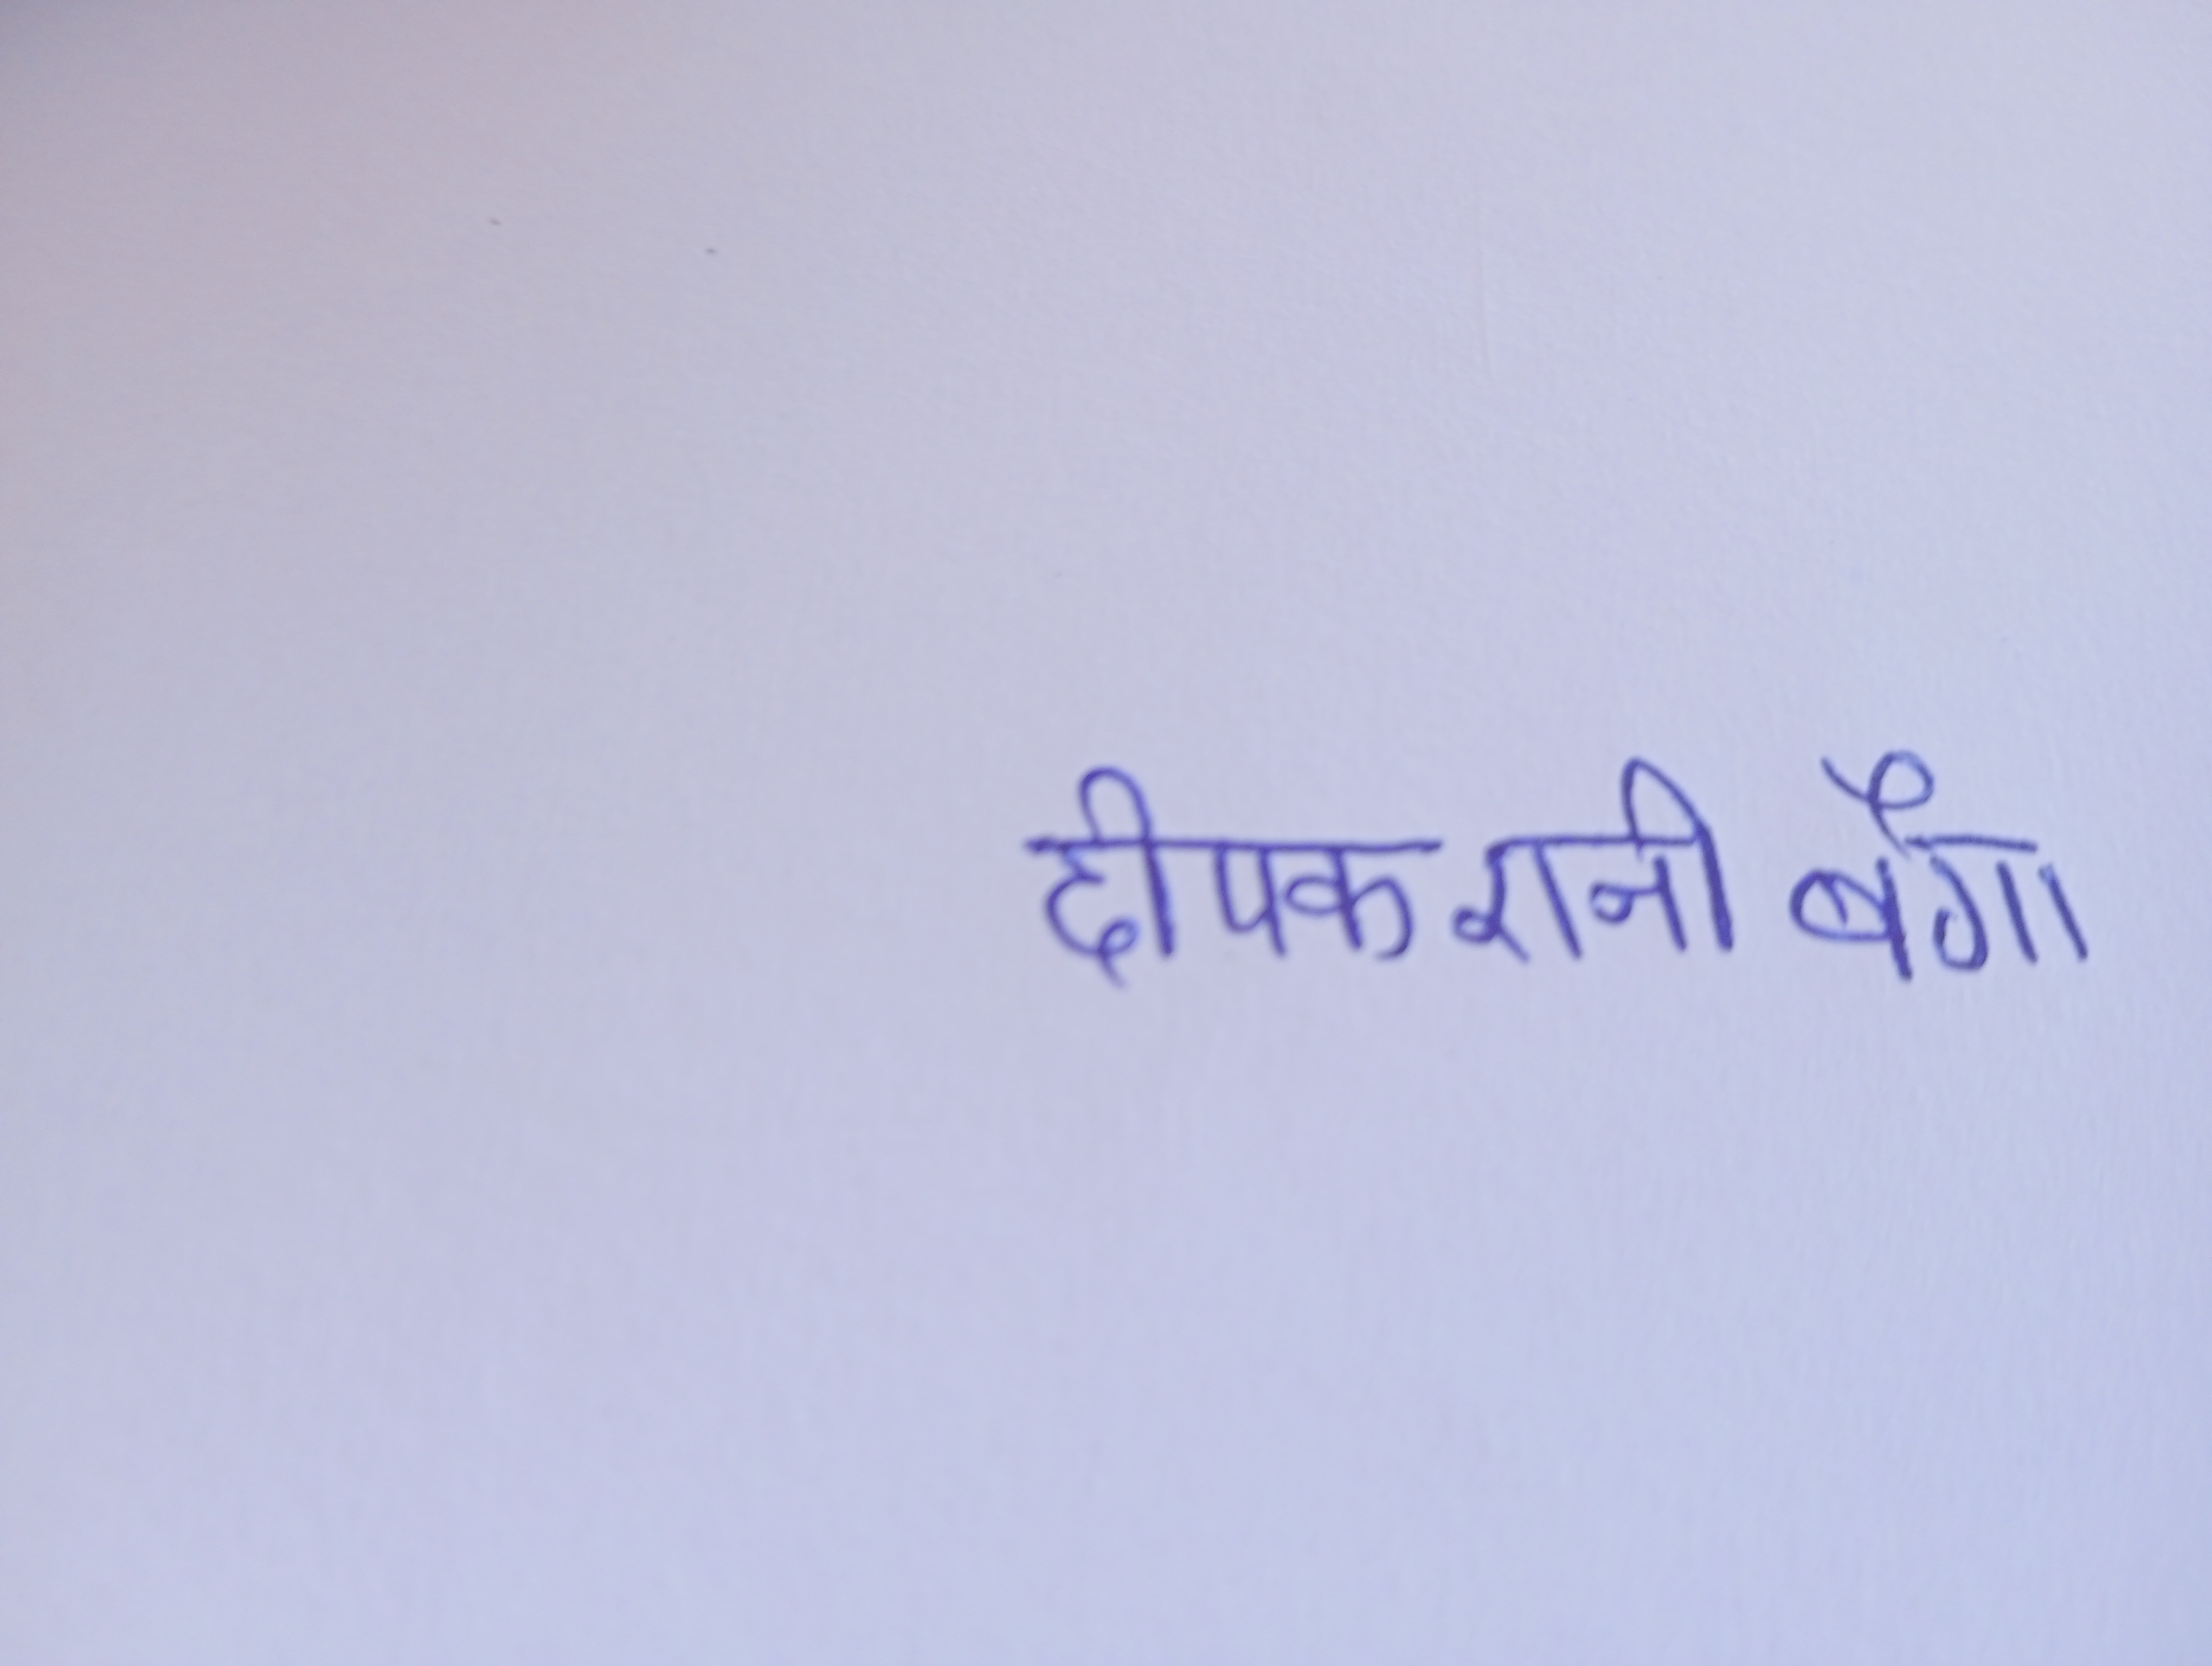 दीपक रानी बैगा